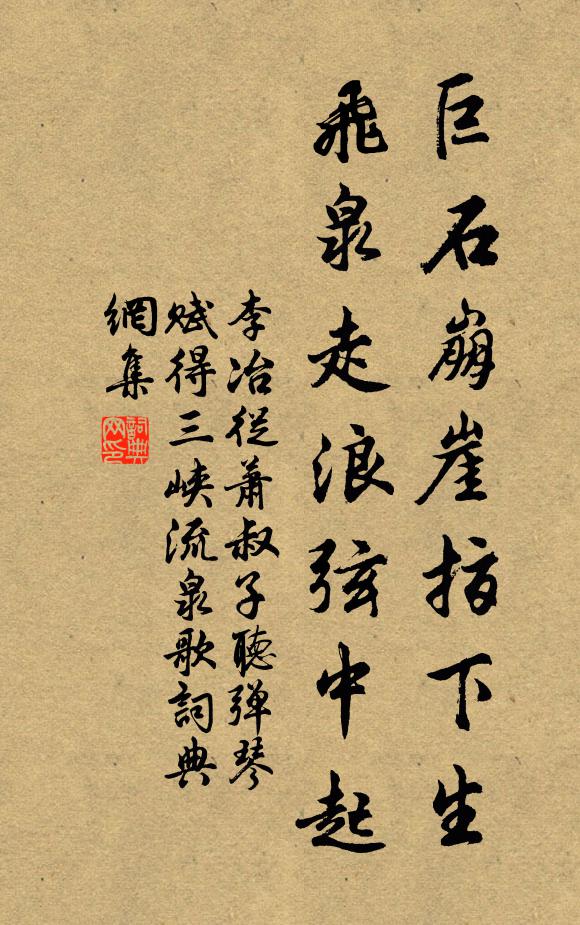 巨石崩崖指下生
飛泉走浪弦中起
李冶從蕭叔子聽弹琴
赋得三峡流泉歌詞典
網集
詞典
网印